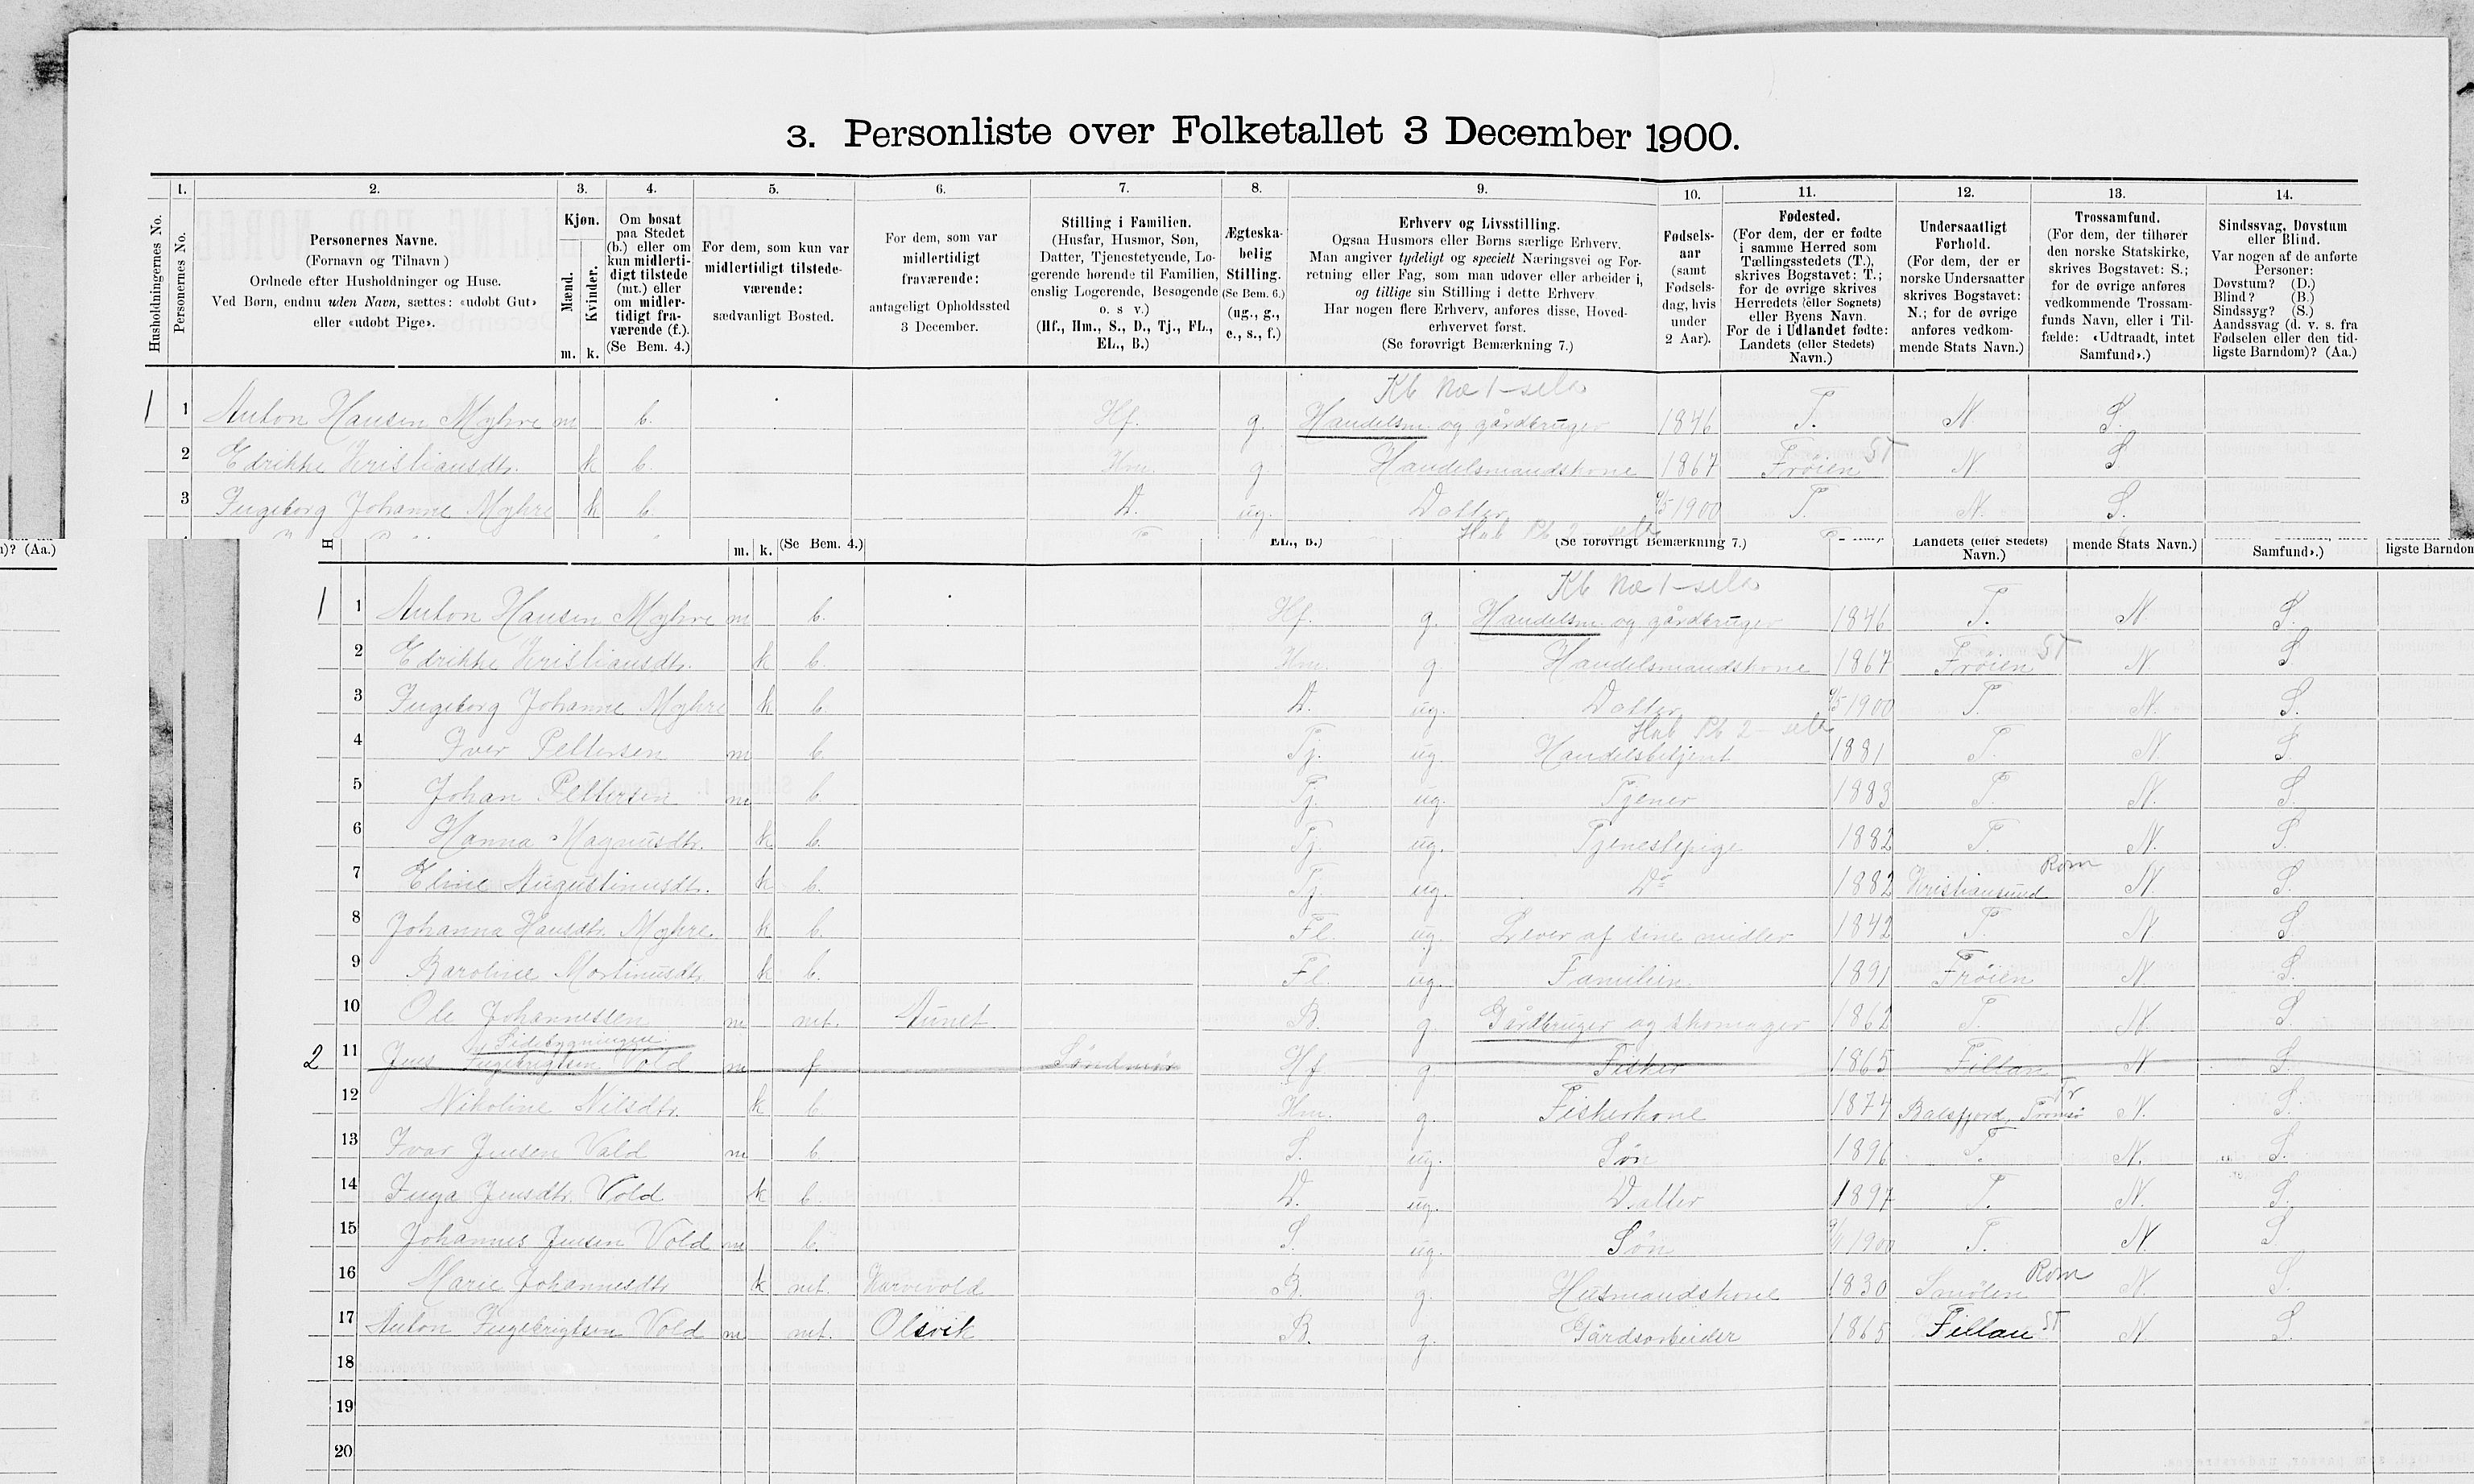 3. Personliste over Folketallet 3 December 1900.
1. 2. 3. 4. 5. 6. 7. 8. 9. 10. 11. 12. 13. 14.
Husholdningernes No.
Personernes No.
Personernes Navne.
(Fornavn og Tilnavn)
Ordnede efter Husholdninger og Huse.
Ved Børn, endnu uden Navn, sættes: «udøbt Gut»
eller «udøbt Pige».
Kjøn.
Mænd.
Kvinder.
m. k.
Om bosat
paa Stedet
(b.) eller om
kun midlerti-
digt tilstede
(mt.) eller
om midler-
tidigt fra-
værende (f.).
(Se Bem. 4.)
For dem, som kun var
midlertidigt tilstede-
værende:
sædvanligt Bosted.
For dem, som var
midlertidigt
fraværende:
antageligt Opholdssted
3 December.
Stilling i Familien.
(Husfar, Husmor, Søn,
Datter, Tjenestetyende, Lo-
gerende hørende til Familien,
enslig Logerende, Besøgende
o. s v.)
(Hf., Hm., S., D., Tj., FL.,
EL., B.)
Ægteska-
belig
Stilling.
(Se Bem. 6.)
(ug., g.,
e., s., f.)
Erhverv og Livsstilling.
Ogsaa Husmors eller Børns særlige Erhverv.
Man angiver tydeligt og specielt Næringsvei og For-
retning eller Fag, som man udøver eller arbeider i,
og tillige sin Stilling i dette Erhverv
Har nogen flere Erhverv, anføres disse, Hoved-
erhvervet først.
(Se forøvrigt Bemærkning 7.)
Fødsels-
aar
(samt
Fødsels-
dag, hvis
under
2 Aar).
Fødested.
(For dem, der er fødte
i samme Herred som
Tællingsstedets (T.),
skrives Bogstavet: T.;
for de øvrige skrives
Herredets (eller Sognets)
eller Byens Navn.
For de i Udlandet fødte:
Landets (eller Stedets)
Navn.)
Undersaatligt
Forhold.
(For dem, der er
norske Undersaatter
skrives Bogstavet:
N.; for de øvrige
anføres vedkom-
mende Stats Navn.)
Trossamfund.
(For dem, der tilhører
den norske Statskirke,
skrives Bogstavet: S.;
for de øvrige anføres
vedkommende Trossam-
funds Navn, eller i Til-
fælde: «Udtraadt, intet
Samfund».)
Sindssvag, Døvstum
eller Blind.
Var nogen af de anførte
Personer:
Døvstum? (D.)
Blind? (B.)
Sindssyg? (S.)
Aandssvag (d. v. s. fra
Fødselen eller den tid-
ligste Barndom)? (Aa.)
1 1 Anton Hansen Myhre m b. Hf. g. Handelsm. og gårdbruger 1846 T. N S.
2 Edrikke Kristiansdtr. k b. Hm. g Handelsmandskone 1867 Frøien ST N S
3 Ingeborg Johanne Myhre k b. D. ug. Datter 1900 T. N. S.
)? (Aa.) m. k. (Se Bem. 4.) EL., B.) (Se forøvrigt Bemærkning 7.) Landets (eller Stedets) Navn.) mende Stats Navn.) Samfund».) ligste Barndom
1 1 Anton Hansen Myhre m b. Hf. g. Handelsm. og gårdbruger 1846 T. N S.
2 Edrikke Kristiansdtr. k b. Hm. g Handelsmandskone 1867 Frøien ST N S
3 Ingeborg Johanne Myhre k b. D. ug. Datter 1900 T. N. S.
4 Iver Pettersen m b Tj. ug. Handelsbetjent 1881 T. N. S
5 Johan Pettersen m b. Tj. ug. Tjener 1883 T. N. S.
6 Hanna Magnusdtr. k b. Tj. ug. Tjenestepige 1882 T. N. S.
7 Eline Augustinusdtr. k b. Tj. ug. Do 1882 Kristiansund Rom N. S.
8 Johanna Hansdtr. Myhre. k b. Fl. ug. Lever af sine midler 1842 T. N S.
9 Karoline Mortinusdtr. k b. Fl. ug. Familien 1891 Frøien N. S.
10 Ole Johannessen m mt. Aunet B. g. Gårdbruger og skomager 1862 T. N. S
Sidebygningen
2 11 Jens Ingebrigtsen Vold m f Søndmør Hf g. Fisker 1865 Fillan N S.
12 Nikoline Nilsdtr. k b Hm. g. Fiskerkone 1874 Balsfjord, Tromsø Tr N. S.
13 Ivar Jensen Vald m b. S. ug. Søn 1896 T. N. S.
14 Inga Jensdtr. Vold k b. D. ug. Datter 1897 T. N. S.
15 Johannes Jensen Vold m b. S. ug. Søn 1900 T. N S
16 Marie Johannesdtr. k mt. Karvevold B. g. Husmandskone 1830 Smølen Rom N. S.
17 Anton Ingebrigtsen Vold m mt. Olsvik B. g. Gårdsarbeider 1865 Fillan ST N S.
18
19
20